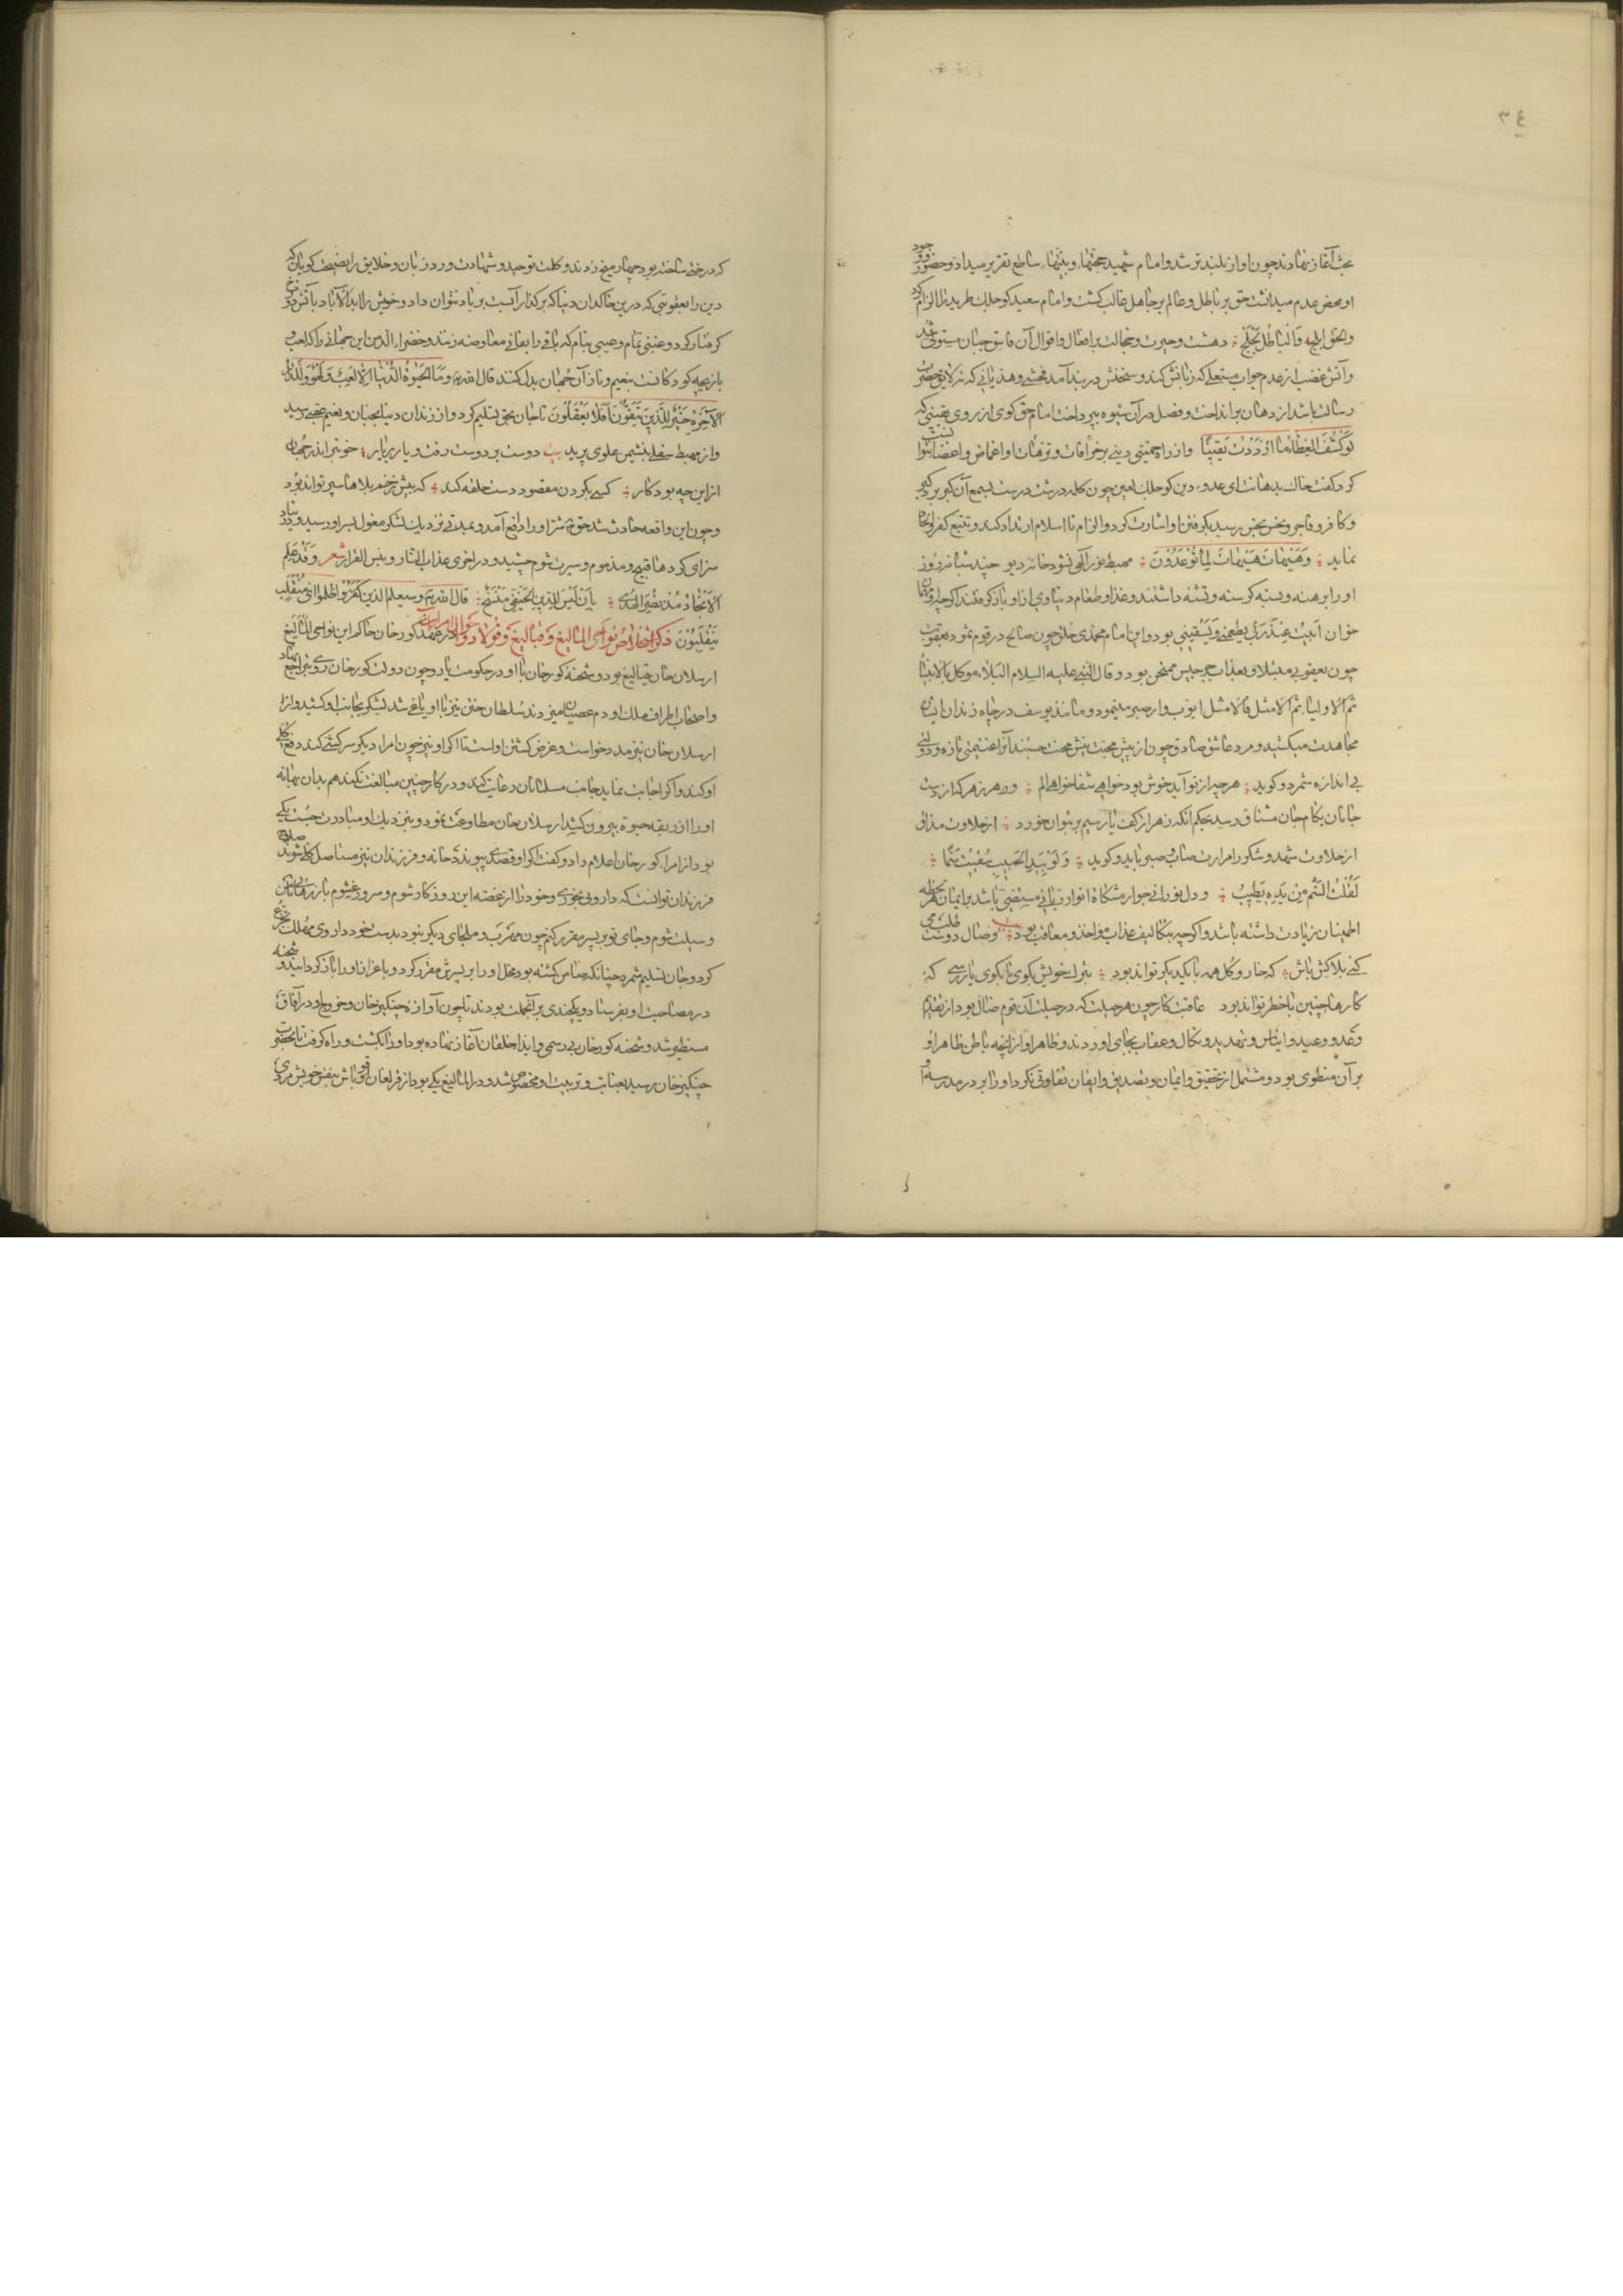 ٣٤
بحث آغاز نهادند چون آواز بلندتر شد و امام شهید حجتها و بینتها ساطع تقریر میداد و حضور و وجود
او محض عدم میدانست حق بر باطل و عالم بر جاهل غالب گشت و امام سعید کوجلک طرید را الزام کرد
والحق ابلج والباطل لجلج دهشت و حیرت و خجالت بر افعال و اقوال آن فاسق جبان مستولی شد
و آتش غضب از عدم جواب مستعلی که زبانش کند و سخنش در بند آمد فحشی و هذیانی که نه لایق حضرت
رسالت باشد از دهان برانداخت و فصل در آن شیوه بپرداخت امام حق گوی از روی یقینی که
لو کشف الغطاء ما ازددت یقینا و از راه حمیتی دینی بر خرافات و ترهات او اغماض و اغضا نتوانست
کرد گفت خاک بدهانت ای عدو دین کوجلک لعین چون کلمه درشت درست بسمع آن کبر پر کبر
و کافر و فاجر و نجس نجس رسید بگرفتن او اشارت کرد و الزام تا از اسلام ارتداد کند و تتبع کفر و الحاد
نماید وهیهات هیهات لما توعدون مهبط نور الهی نشود خانه دیو چند شبانروز
او را برهنه و بسته گرسنه و تشنه داشتند و غذا و طعام دنیاوی از او باز گرفتند اگرچه او مهمان
خوان ابیت عند ربی یطعمنی و یسقینی بود و این امام محمدی خلق چون صالح در قوم ثمود بعقوبت
چون یعقوبی مبتلا و بعذاب جرجیس ممتحن بود و قال النبی علیه السلام البلاء موکل بالانبیاء
ثم الاولیاء ثم الامثل فالامثل ایوب وار صبر مینمود و مانند یوسف در چاه زندان ایشان
مجاهدت میکشید و مرد عاشق صادق چون از بیش محبت نیش محنت چشند آنرا غنیمتی تازه و دولتی
بی اندازه شمرد و گوید هر چه از تو آید خوش بود خواهی شفا خواهی الم و هر زهر که از دست
جانان بکام جان مشتاق رسد بحکم آنکه زهر از کف یار سیم بر بتوان خورد از حلاوت مذاق
از حلاوت شهد و شکر را مرارت صاب و صبر یابد و گوید ولو بید الحبیب سقیت سما
لقلت السم من یده یطیب و دل نورانی چو از مشکاة انوار ربانی مستضی باشد بر ایمان هر لحظه
اطمینان زیادت داشته باشد و اگرچه بتکالیف عذاب مؤاخذ و معاقب بود بیت وصال دوست طلب می
کنی بلا کش باش که خار و گل همه با یکدیگر تواند بود بترک خویش بگوی تا بکوی یار رسی که
کارها چنین با خطر تواند بود عاقبت کار چون هر حیلت که در جبلت آن قوم ضال بود از تقدیم
وعد و وعید و ایناس و تهدید و نکال و عقاب بجای آوردند و ظاهر او از آنچه باطن ظاهر او
بر آن منطوی بود و مشتمل از تحقیق و ایمان و تصدیق و ایقان تفاوتی نکرد او را بر در مدرسه او
که در ختن ساخته بود چهار میخ زدند و کلمت توحید و شهادت ورد زبان و خلایق را نصیحت گویان که
دین را بعقوبتی که درین خاکدان دنیا که بر گذار آبست بر باد نتوان داد و خویش را ابد الآباد بآتش دوزخ
گرفتار کرد و غبنی تمام و عیبی بنام که باقی را بفانی معاوضه زنند و خضراء الدمن این جهانی را که لعب و
بازیچه کودکانست بنعیم و ناز آن جهان بدل کنند قال الله تعالی وما الحیوة الدنیا الا لعب ولهو وللدار
الآخرة خیر للذین یتقون افلا یعقلون تا جان بحق تسلیم کرد و از زندان دنیا بجنان و نعیم عقبی رسید
و از مهبط سفلی بنشیمن علوی پرید بیت دوست بر دوست رفت و یار بر یار خوشتر اندر جهان
ازین چه بود کار کسی بگردن مقصود دست حلقه کند که پیش زخم بلاها سپر تواند بود
و چون این واقعه حادث شد حق تعالی شر او را دافع آمد و بمدتی نزدیک لشکر مغول بسر او رسید و در دنیا
سزای کردهاء قبیح و مذموم و سیرت شوم چشید و در اخری عذاب النار و بئس القرار شعر وقد علم
الانجاد مذ نضر الهدی بان لیس للدین الحنیفی منسخ قال الله تعالی وسیعلم الذین ظلموا ای منقلب
ینقلبون ذکر استخلاص نواحی المالیغ و قیالیغ و فولاد و احوال امراء آن در عهد کورخان حاکم این نواحی المالیغ
ارسلان خان قیالیغ بود و شحنه کورخان با او در حکومت یار و چون دولت کورخان روی بتراجع نهاد
و اصحاب اطراف ملک او دم عصیان میزدند سلطان ختن نیز با او یاغی شد لشکر بجانب او کشید و از
ارسلان خان نیز مدد خواست و غرض کشتن او است تا اگر او نیز چون امراء دیگر سرکشی کند دفع کلی
او کند و اگر اجابت نماید و جانب مسلمانان رعایت کند و در کار چنین مبالغت نکند هم بدان بهانه
او را از ربقه حیوة بیرون کشد ارسلان خان مطاوعت نمود و بنزدیک او مبادرت جست یکی
بود از امراء کورخان اعلام داد و گفت اگر او قصدی پیوندد خانه و فرزندان نیز مستاصل کلی شوند صلاح
فرزندان تو آنست که دارویی بخوری و خود را از غصه این روزگار شوم و سرور غشوم باز رهانی تا من
وسیلت شوم و جای تو بر پسر مقرر کنم چون مهرب و ملجای دیگر نبود بدست خود داروی مهلک تجرع
کرد و جان تسلیم شمرد چنانکه ضامن گشته بود محل او را بر پسرش مقرر کرد و باعزاز او را بازگردانید و شحنه
در مصاحبت او بفرستاد و یکچندی بر آن جملت بودند تا چون آوازه چنگیزخان و خروج او در آفاق
مستطیر شد و شحنه کورخان بی رسمی و ایذاء خلقان آغاز نهاده بود او را بکشت و راه گرفت تا بحضرت
چنگیزخان رسید بعنایت و تربیت او مخصوص شد و در المالیغ یکی بود از قرلغان قوناش بنفس خویش مردی